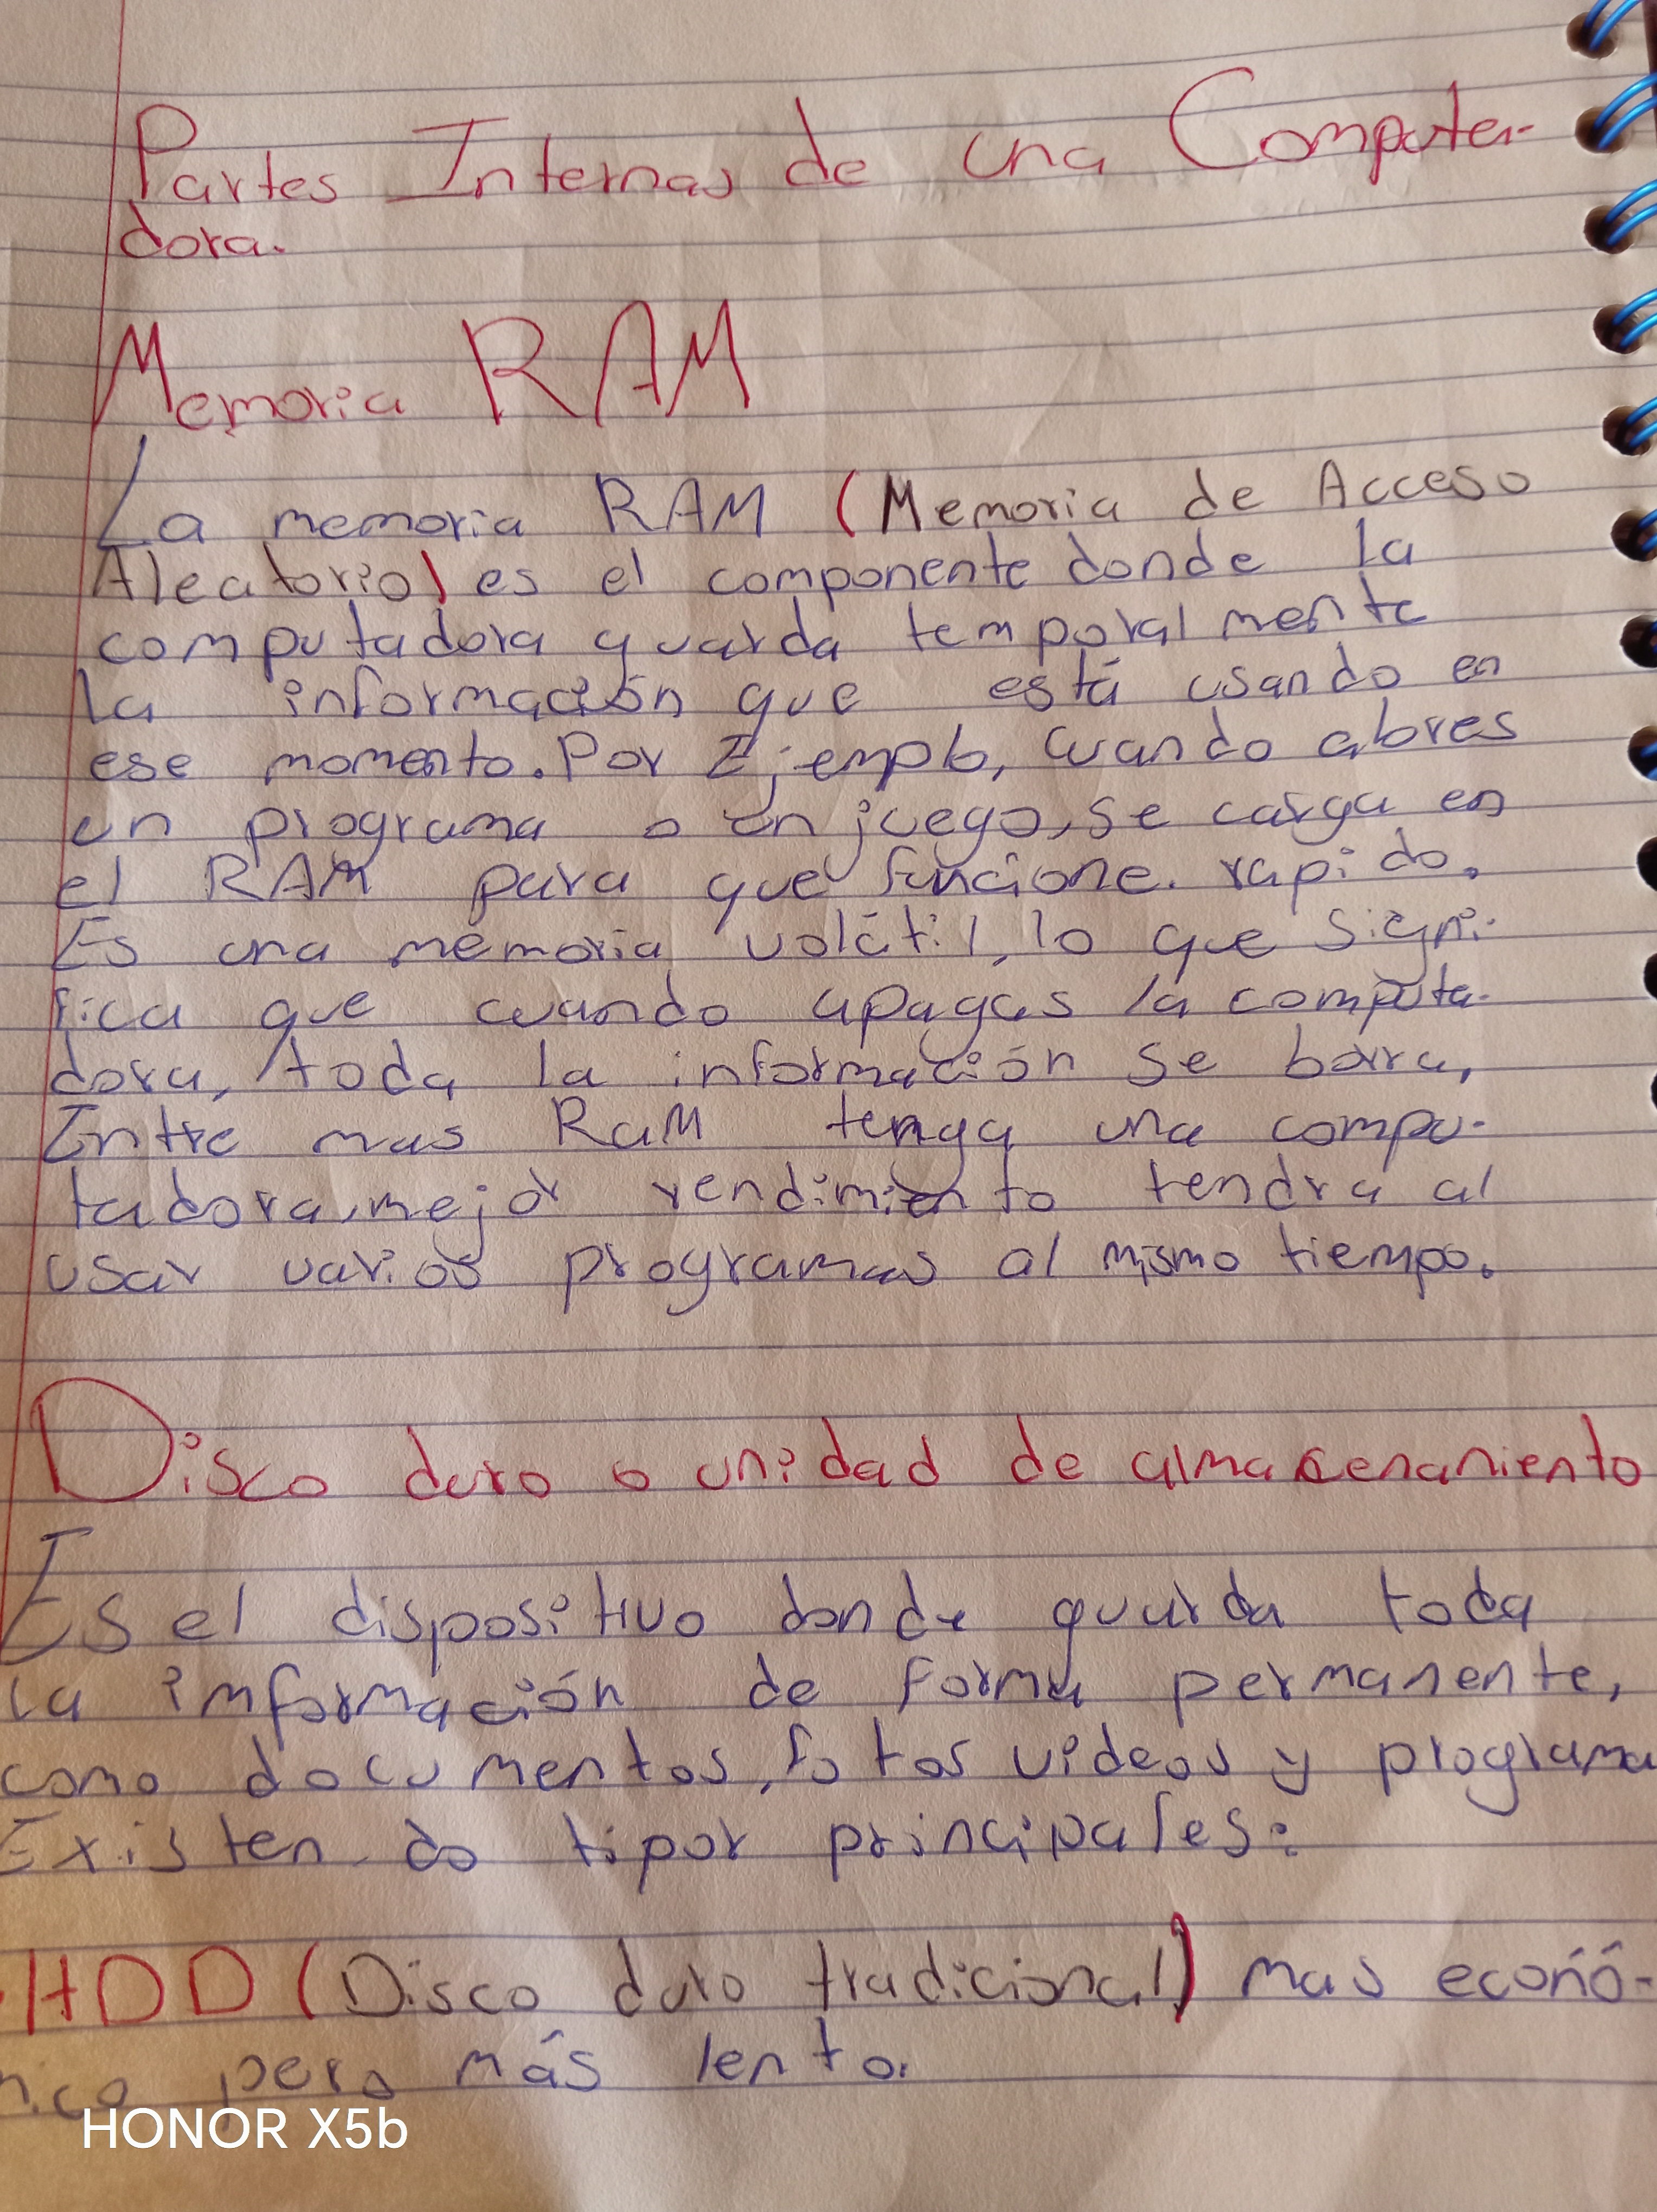 Partes Internas de una Computa-
dora.
Memoria RAM
La memoria RAM (Memoria de Acceso
Aleatorio) es el componente donde la
computadora guarda temporalmente
la información que está usando en
ese momento. Por Ejemplo, cuando abres
un programa o un juego, se carga en
el RAM para que funcione. rapido.
Es una memoria volátil, lo que signi-
fica que cuando apagas la computa-
dora, toda la información se borra,
Entre mas RaM tenga una compu-
tadora, mejor rendimiento tendra al
usar varios programas al mismo tiempo.
Disco duro o unidad de almacenamiento
Es el dispositivo donde guarda toda
la imformación de forma permanente,
como documentos, fotos videos y programa
Existen do tipor principales:
·HDD (Disco duro tradicional) mas econó-
mico pero más lento.
HONOR X5b